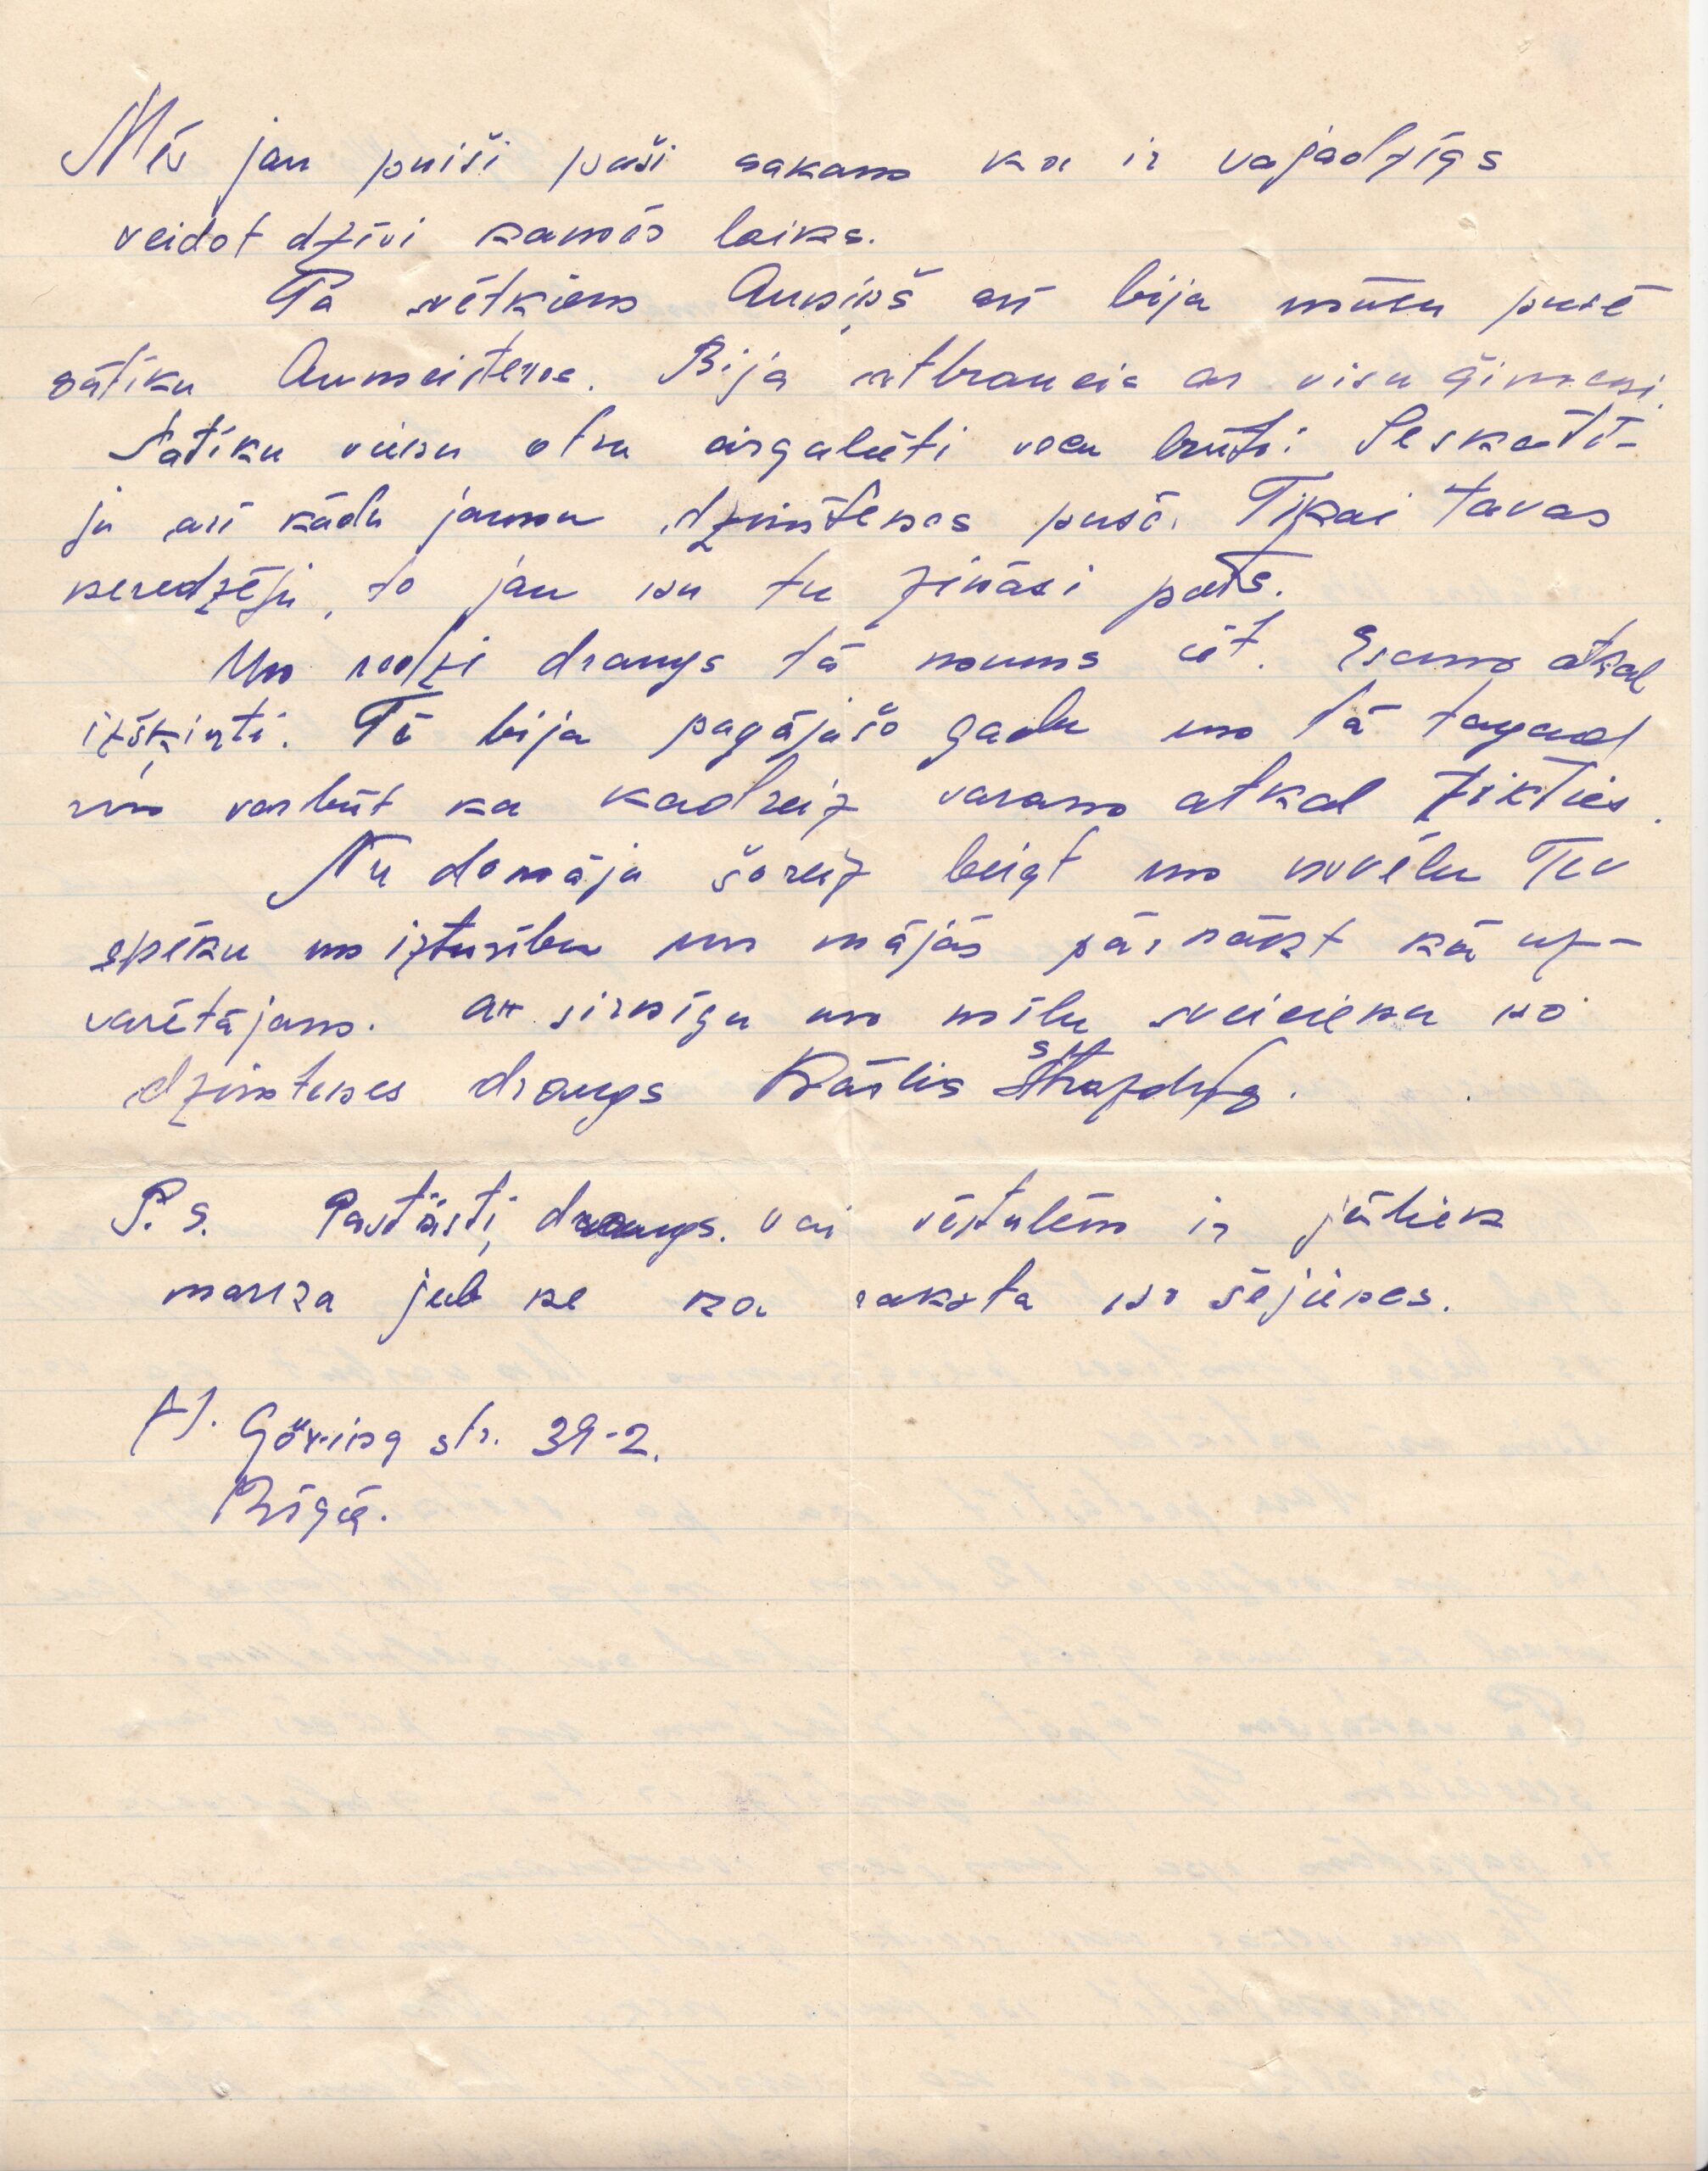 Mēs jau puiši paši sakam ka ir vajadzīgs
veidot dzīvi kamēr laiks.
Pa svētkiem Auniņš arī bija mūsu pusē
satiku Aumeisteros. Bija atbraucis ar visu ģimeni.
Satiku viņu otru aizgalieti veca brūti. Ieskatī-
ju arī kādu jaunu dzimtenes pusē. Tikai tavas
neredzēju, to jau nu tu zināsi pats.
Un redzi draugs tā mums iet. Esam atkal
izšķirti. Tā bija pagājušo gadu un tā tagad
un varbūt ka kādreiz varam atkal tikties.
Nu domāju šoreiz beigt un novēlu Tev
spēku un izturību un mājās pārnākt kā uz-
varētājam. Ar sirsnīgu un mīlu sveicienu no
dzimtenes draugs Kārlis Strazdiņš.
P.S. Pastāsti, draugs. vai vēstulēm ir jāliek
marka jeb ne ka raksta no šejienes.
H. Göring str. 39-2.
Rīgā.